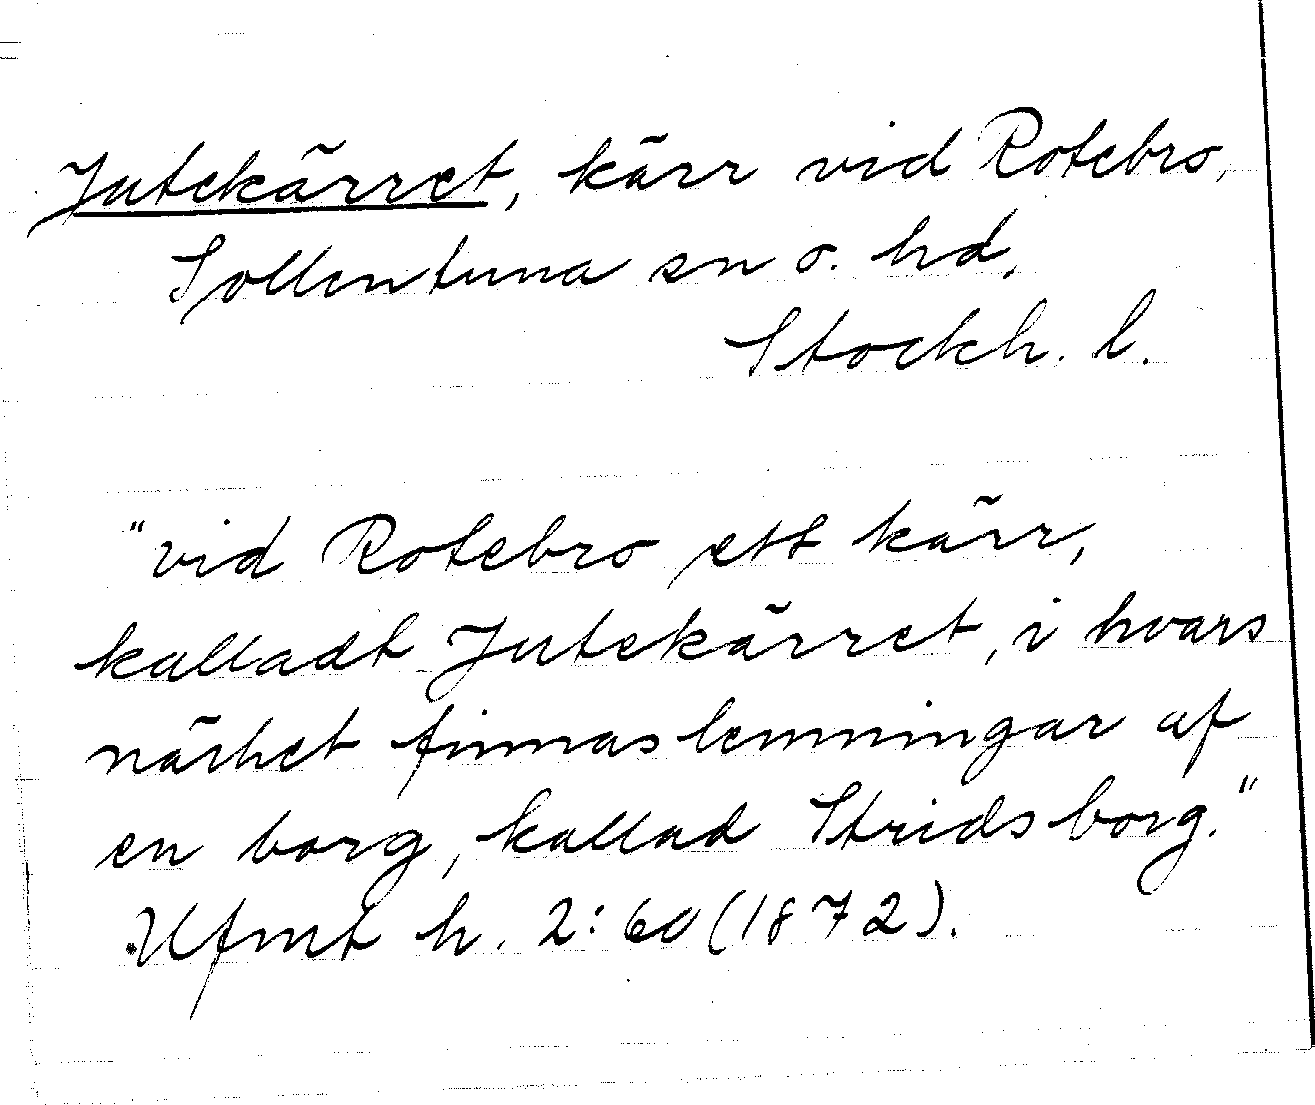 Jutekärret, kärr vid Rotebro,
Sollentuna sn o. hd,
Stockh. l.
"vid Rotebro ett kärr,
kalladt Jutekärret, i hvars
närhet finnas lemningar af
en borg, kallad Stridsborg."
Ufmt h. 2:60 (1872).